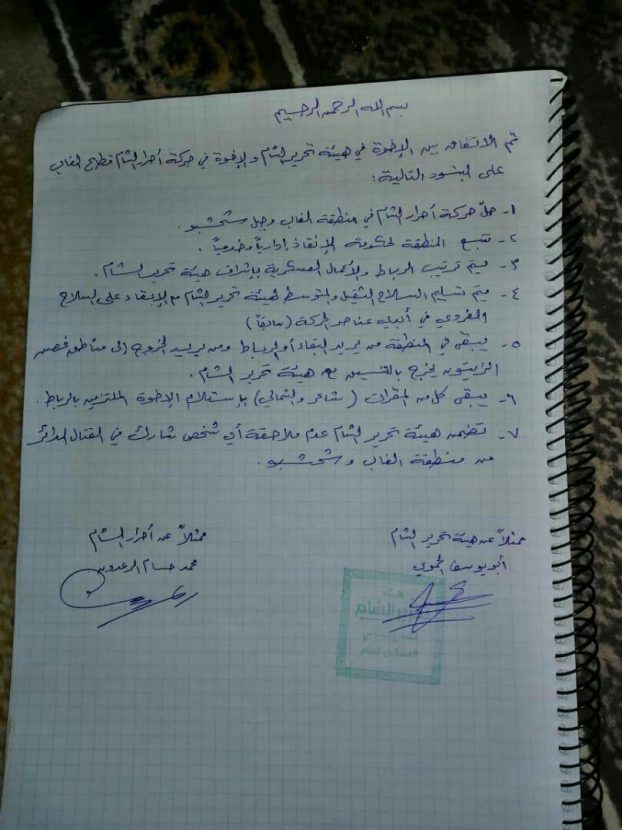 بسم الله الرحمن الرحيم
تم الاتفاق بين الإخوة في هيئة تحرير الشام والإخوة في حركة أحرار الشام قطاع الغاب
على البنود التالية:
١- حل حركة أحرار الشام في منطقة الغاب وجبل شحشبو.
٢- تتبع المنطقة لحكومة الإنقاذ إدارياً وخدمياً.
٣- يتم ترتيب الرباط والأعمال العسكرية بإشراف هيئة تحرير الشام.
٤- يتم تسليم السلاح الثقيل والمتوسط لهيئة تحرير الشام مع الإبقاء على السلاح
الفردي في أيدي عناصر الحركة (سابقاً)
٥- يبقى في المنطقة من يريد البقاء أو الرباط ومن يريد الخروج إلى مناطق غصن
الزيتون يخرج بالتنسيق مع هيئة تحرير الشام.
٦- يبقى كل من المقرات (شاهر والشمالي) بإستلام الإخوة الملتزمين بالرباط.
٧- تضمن هيئة تحرير الشام عدم ملاحقة أي شخص شارك في القتال الدائر
من منطقة الغاب وشحشبو.
ممثلاً عن هيئة تحرير الشام
ممثلاً عن أحرار الشام
أبو يوسف الحموي
محمد حسام
هيئة
تحرير الشام